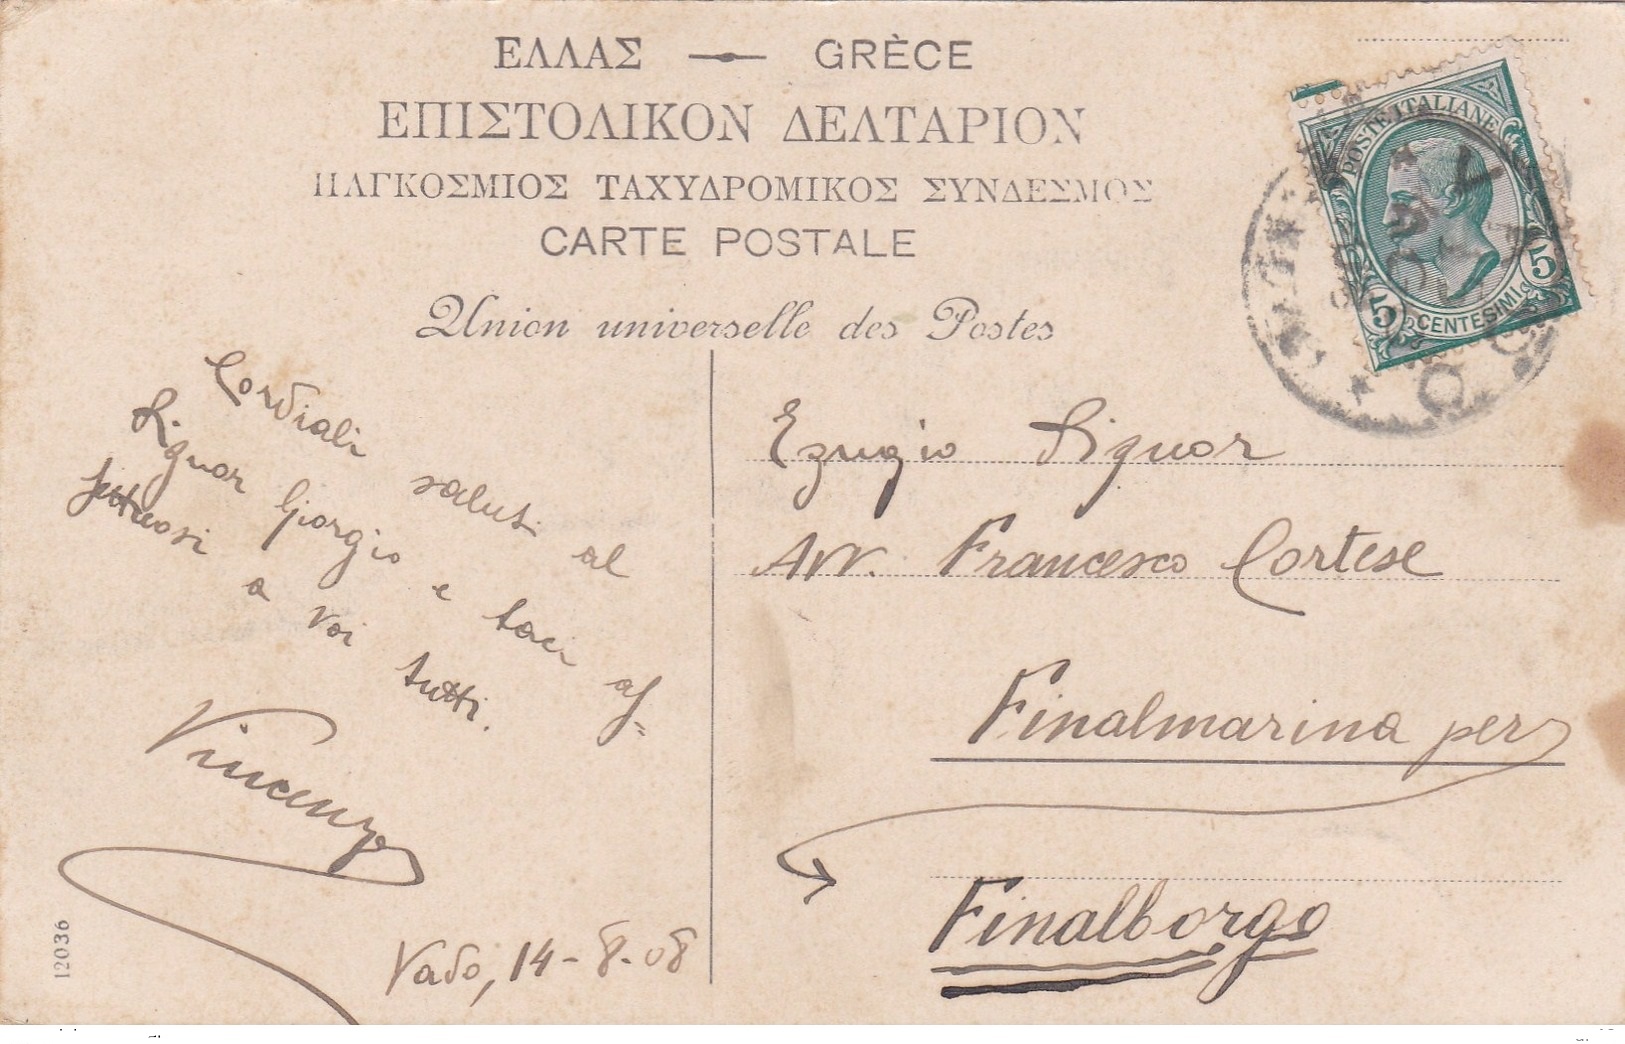 ΕΛΛΑΣ — GRÈCE
ΕΠΙΣΤΟΛΙΚΟΝ ΔΕΛΤΑΡΙΟΝ
ΠΑΓΚΟΣΜΙΟΣ ΤΑΧΥΔΡΟΜΙΚΟΣ ΣΥΝΔΕΣΜΟΣ
CARTE POSTALE
Union universelle des Postes
POSTE ITALIANE
5 CENTESIMI 5
Cordiali saluti al
Signor Giorgio e baci af=
fettuosi a voi tutti.
Vincenzo
Vado, 14-8-08
Egregio Signor
Avv. Francesco Cortese
Finalmarina per
Finalborgo
12036